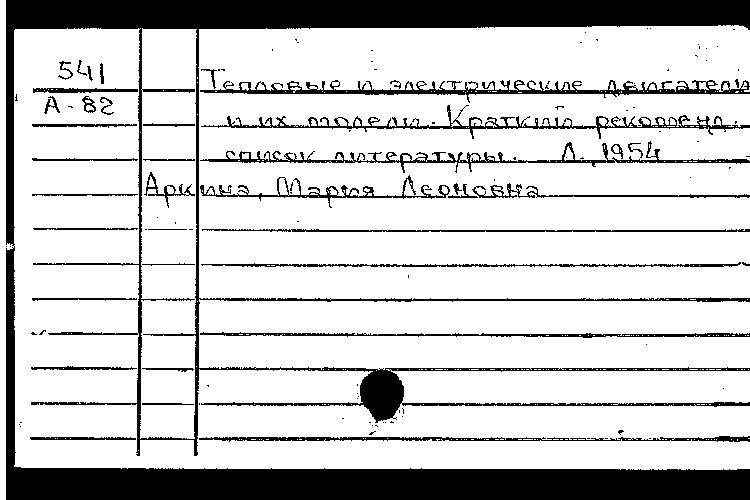 541
А-82
Тепловые и электрические двигатели
и их модели. Краткий рекоменд.
список литературы. Л., 1954
Аркина, Мария Леоновна